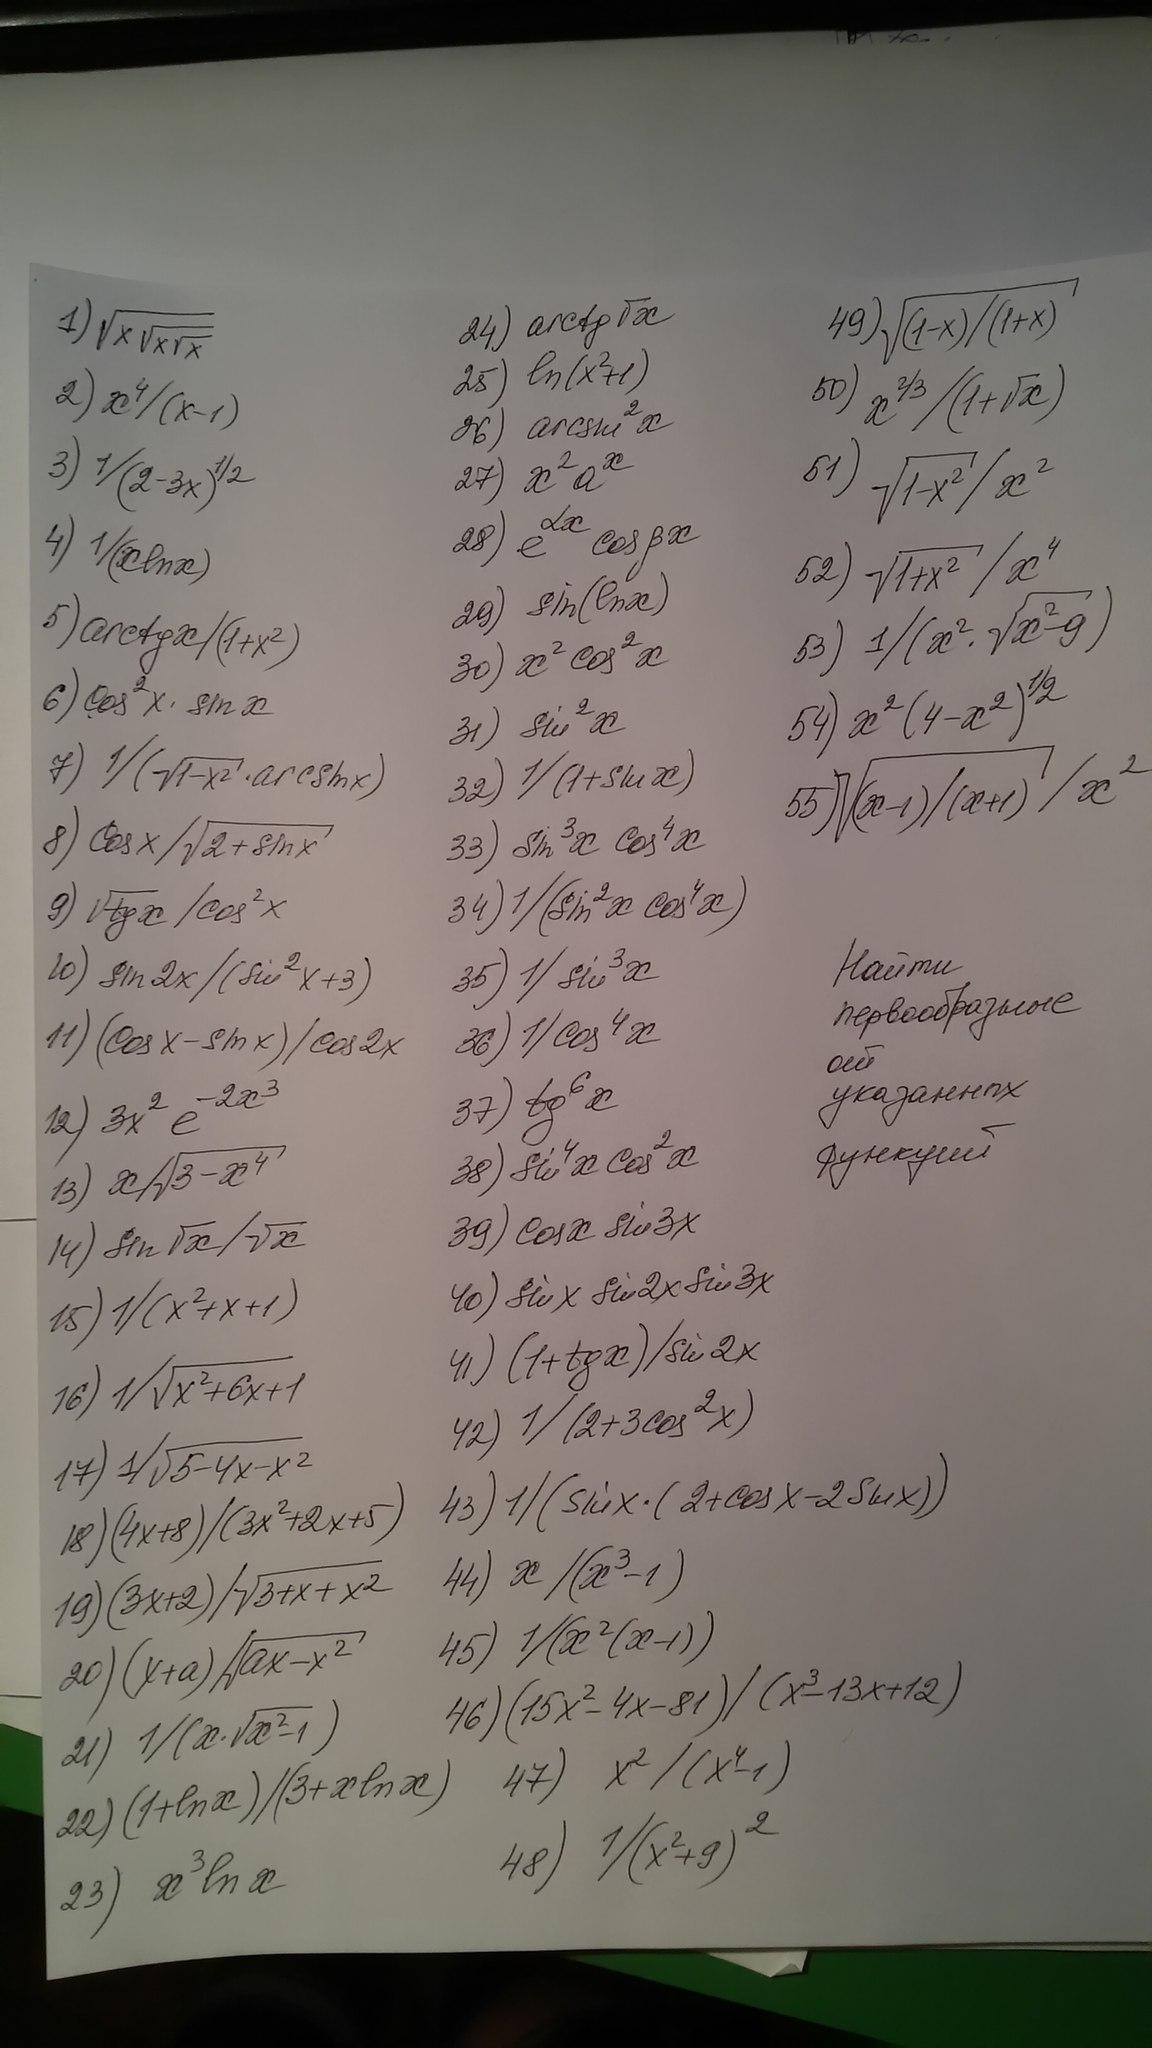 1) √(x√(x√x))
2) x⁴/(x-1)
3) 1/(2-3x)^1/2
4) 1/(xlnx)
5) arctgx/(1+x²)
6) cos²x · sin x
7) 1/(√(1-x²) · arcsinx)
8) cosx/√(2+sinx)
9) √tgx /cos²x
10) sin2x/(sin²x+3)
11) (cosx-sinx)/cos2x
12) 3x² e^-2x³
13) x/√(3-x⁴)
14) sin√x/√x
15) 1/(x²+x+1)
16) 1/√(x²+6x+1)
17) 1/√(5-4x-x²)
18) (4x+8)/(3x²+2x+5)
19) (3x+2)/√(3+x+x²)
20) (x+a)/√(ax-x²)
21) 1/(x·√(x²-1))
22) (1+lnx)/(3+xlnx)
23) x³lnx
24) arctg√x
25) ln(x²+1)
26) arcsin²x
27) x² a^x
28) e^αx cosβx
29) sin(lnx)
30) x² cos²x
31) sin²x
32) 1/(1+sinx)
33) sin³x cos⁴x
34) 1/(sin²x cos⁴x)
35) 1/sin³x
36) 1/cos⁴x
37) tg⁶x
38) sin⁴x cos²x
39) cosx sin3x
40) sinx sin2x sin3x
41) (1+tgx)/sin2x
42) 1/(2+3cos²x)
43) 1/(sinx·(2+cosx-2sinx))
44) x/(x³-1)
45) 1/(x²(x-1))
46) (15x²-4x-81)/(x³-13x+12)
47) x²/(x⁴-1)
48) 1/(x²+9)²
49) √((1-x)/(1+x))
50) x^2/3/(1+√x)
51) √(1-x²)/x²
52) √(1+x²)/x⁴
53) 1/(x²·√(x²-9))
54) x²(4-x²)^1/2
55) √((x-1)/(x+1))/x²
Найти
первообразные
от
указанных
функций